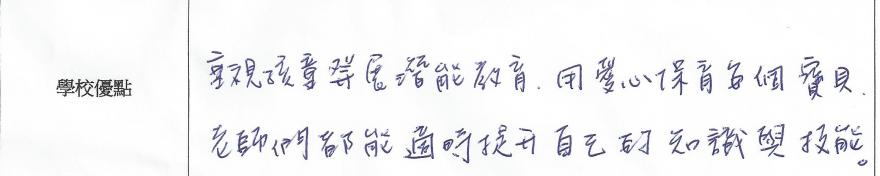 學校優點
重視孩童發展潛能教育.用愛心保育每個寶貝.
老師們都能適時提升自己的知識與技能。